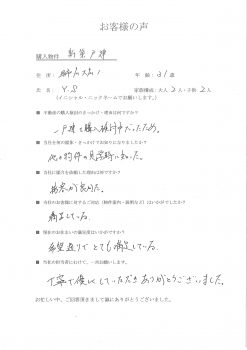 お客様の声
購入物件 新築戸建
住所： 年齢：31歳
氏名： Y.S 家族構成：大人2人・子供2人
（イニシャル・ニックネームでお願いします。）
■ 不動産の購入検討のきっかけ・理由は何ですか？
一戸建を購入検討中だったため。
■ 当社を何の媒体・きっかけでお知りになりましたか？
他の物件の見学時に知った。
■ 当社に媒介を依頼した理由は何ですか？
接客が良かった。
■ 当社のお客様に対するご対応（物件案内・説明など）はいかがでしたか？
満足している。
■ 現在のお住まいの満足度はいかがですか？
希望通りでとても満足している。
■ 当社の担当者にむけて、一言お願いします。
丁寧で優しくしていただきありがとうございました。
お忙しい中、ご回答頂きまして誠にありがとうございました。